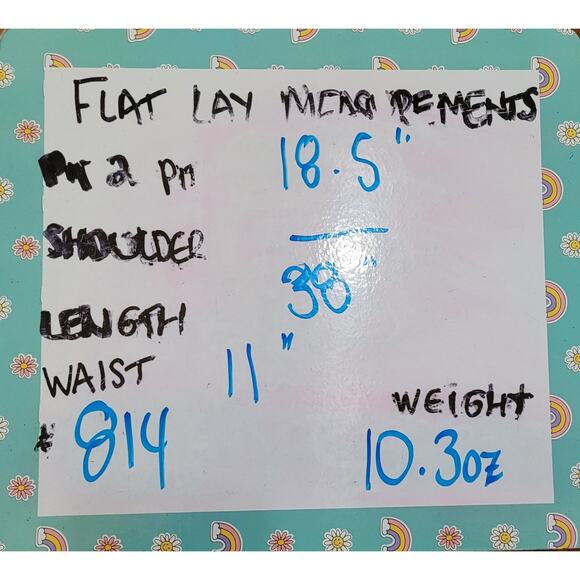 FLAT LAY MEASUREMENTS
P 2 P 18.5"
SHOULDER —
LENGTH 38"
WAIST 11"
# 814
WEIGHT
10.3oz